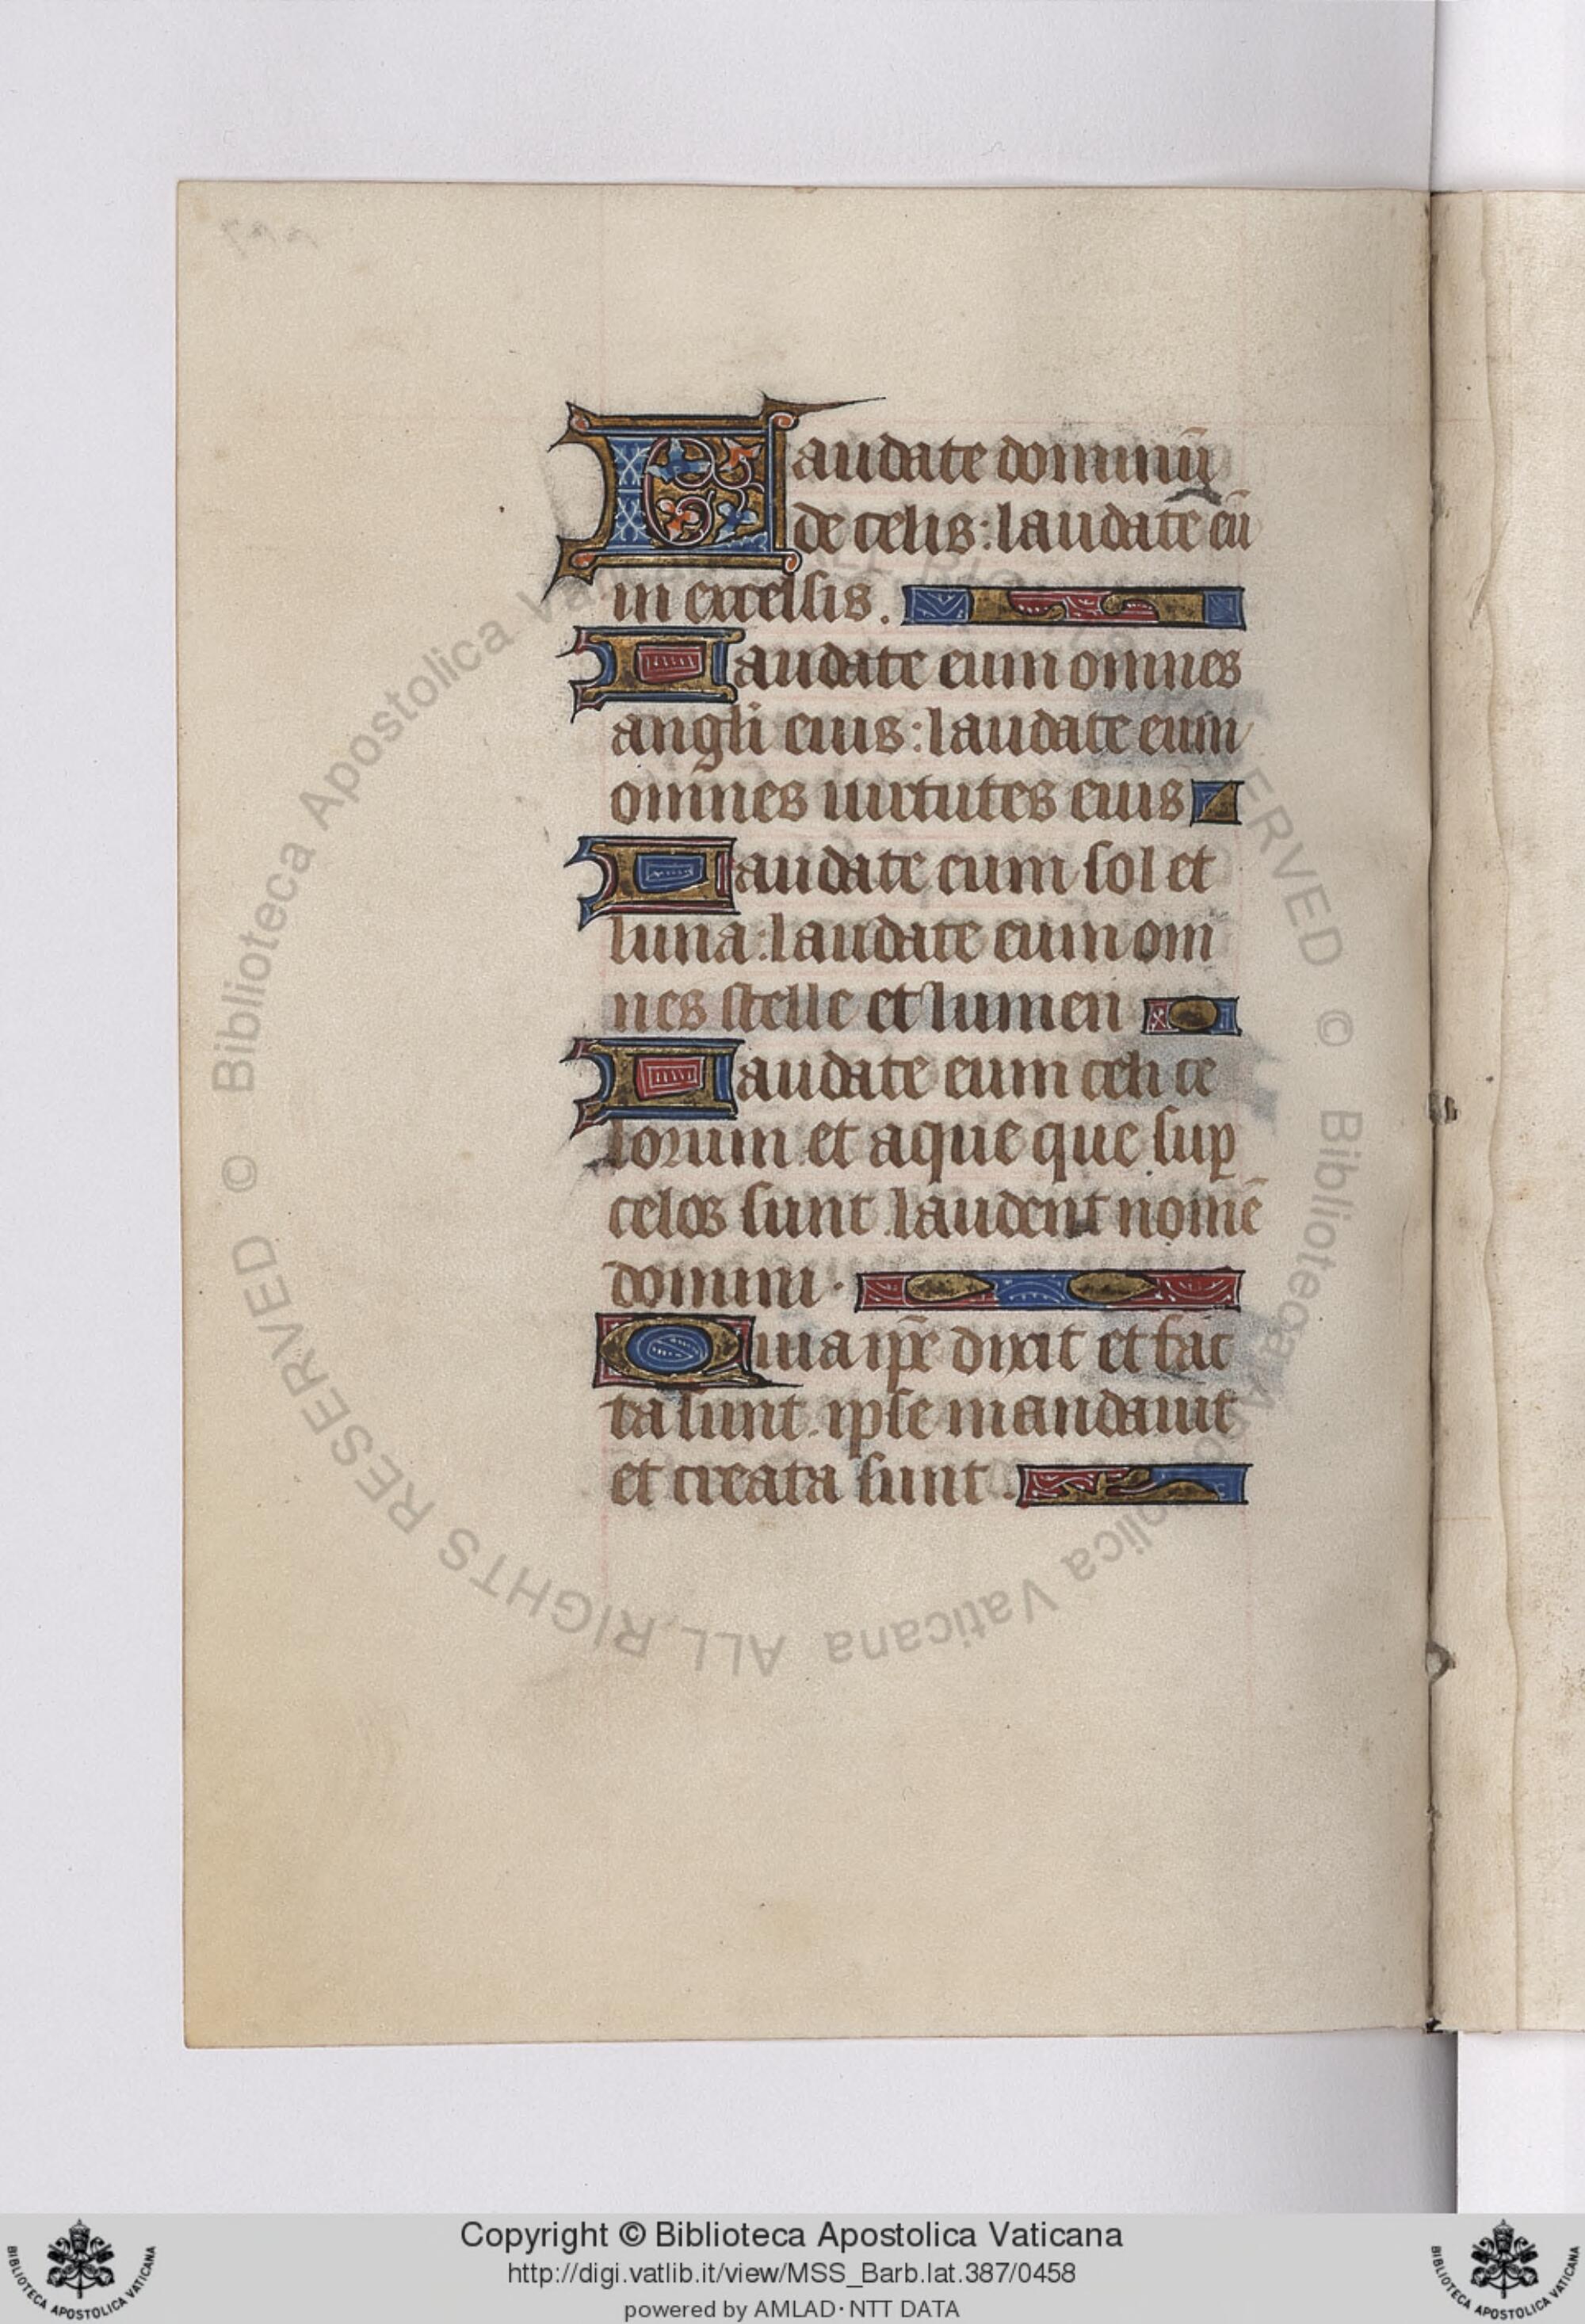 Laudate dominū
de celis: laudate eū
in excelsis.
Laudate eum omnes
angli eius: laudate eum
omnes uirtutes eius
Laudate eum sol et
luna: laudate eum om
nes stelle et lumen
Laudate eum celi ce
lorum et aque que sup
celos sunt laudent nomē
domini.
Quia ip̄e dixit et fac
ta sunt. ipse mandauit
et creata sunt.
© Biblioteca Apostolica Vaticana ALL RIGHTS RESERVED © Biblioteca Apostolica Vaticana ALL RIGHTS RESERVED
Copyright © Biblioteca Apostolica Vaticana
http://digi.vatlib.it/view/MSS_Barb.lat.387/0458
powered by AMLAD·NTT DATA
BIBLIOTECA APOSTOLICA VATICANA
BIBLIOTECA APOSTOLICA VATICANA